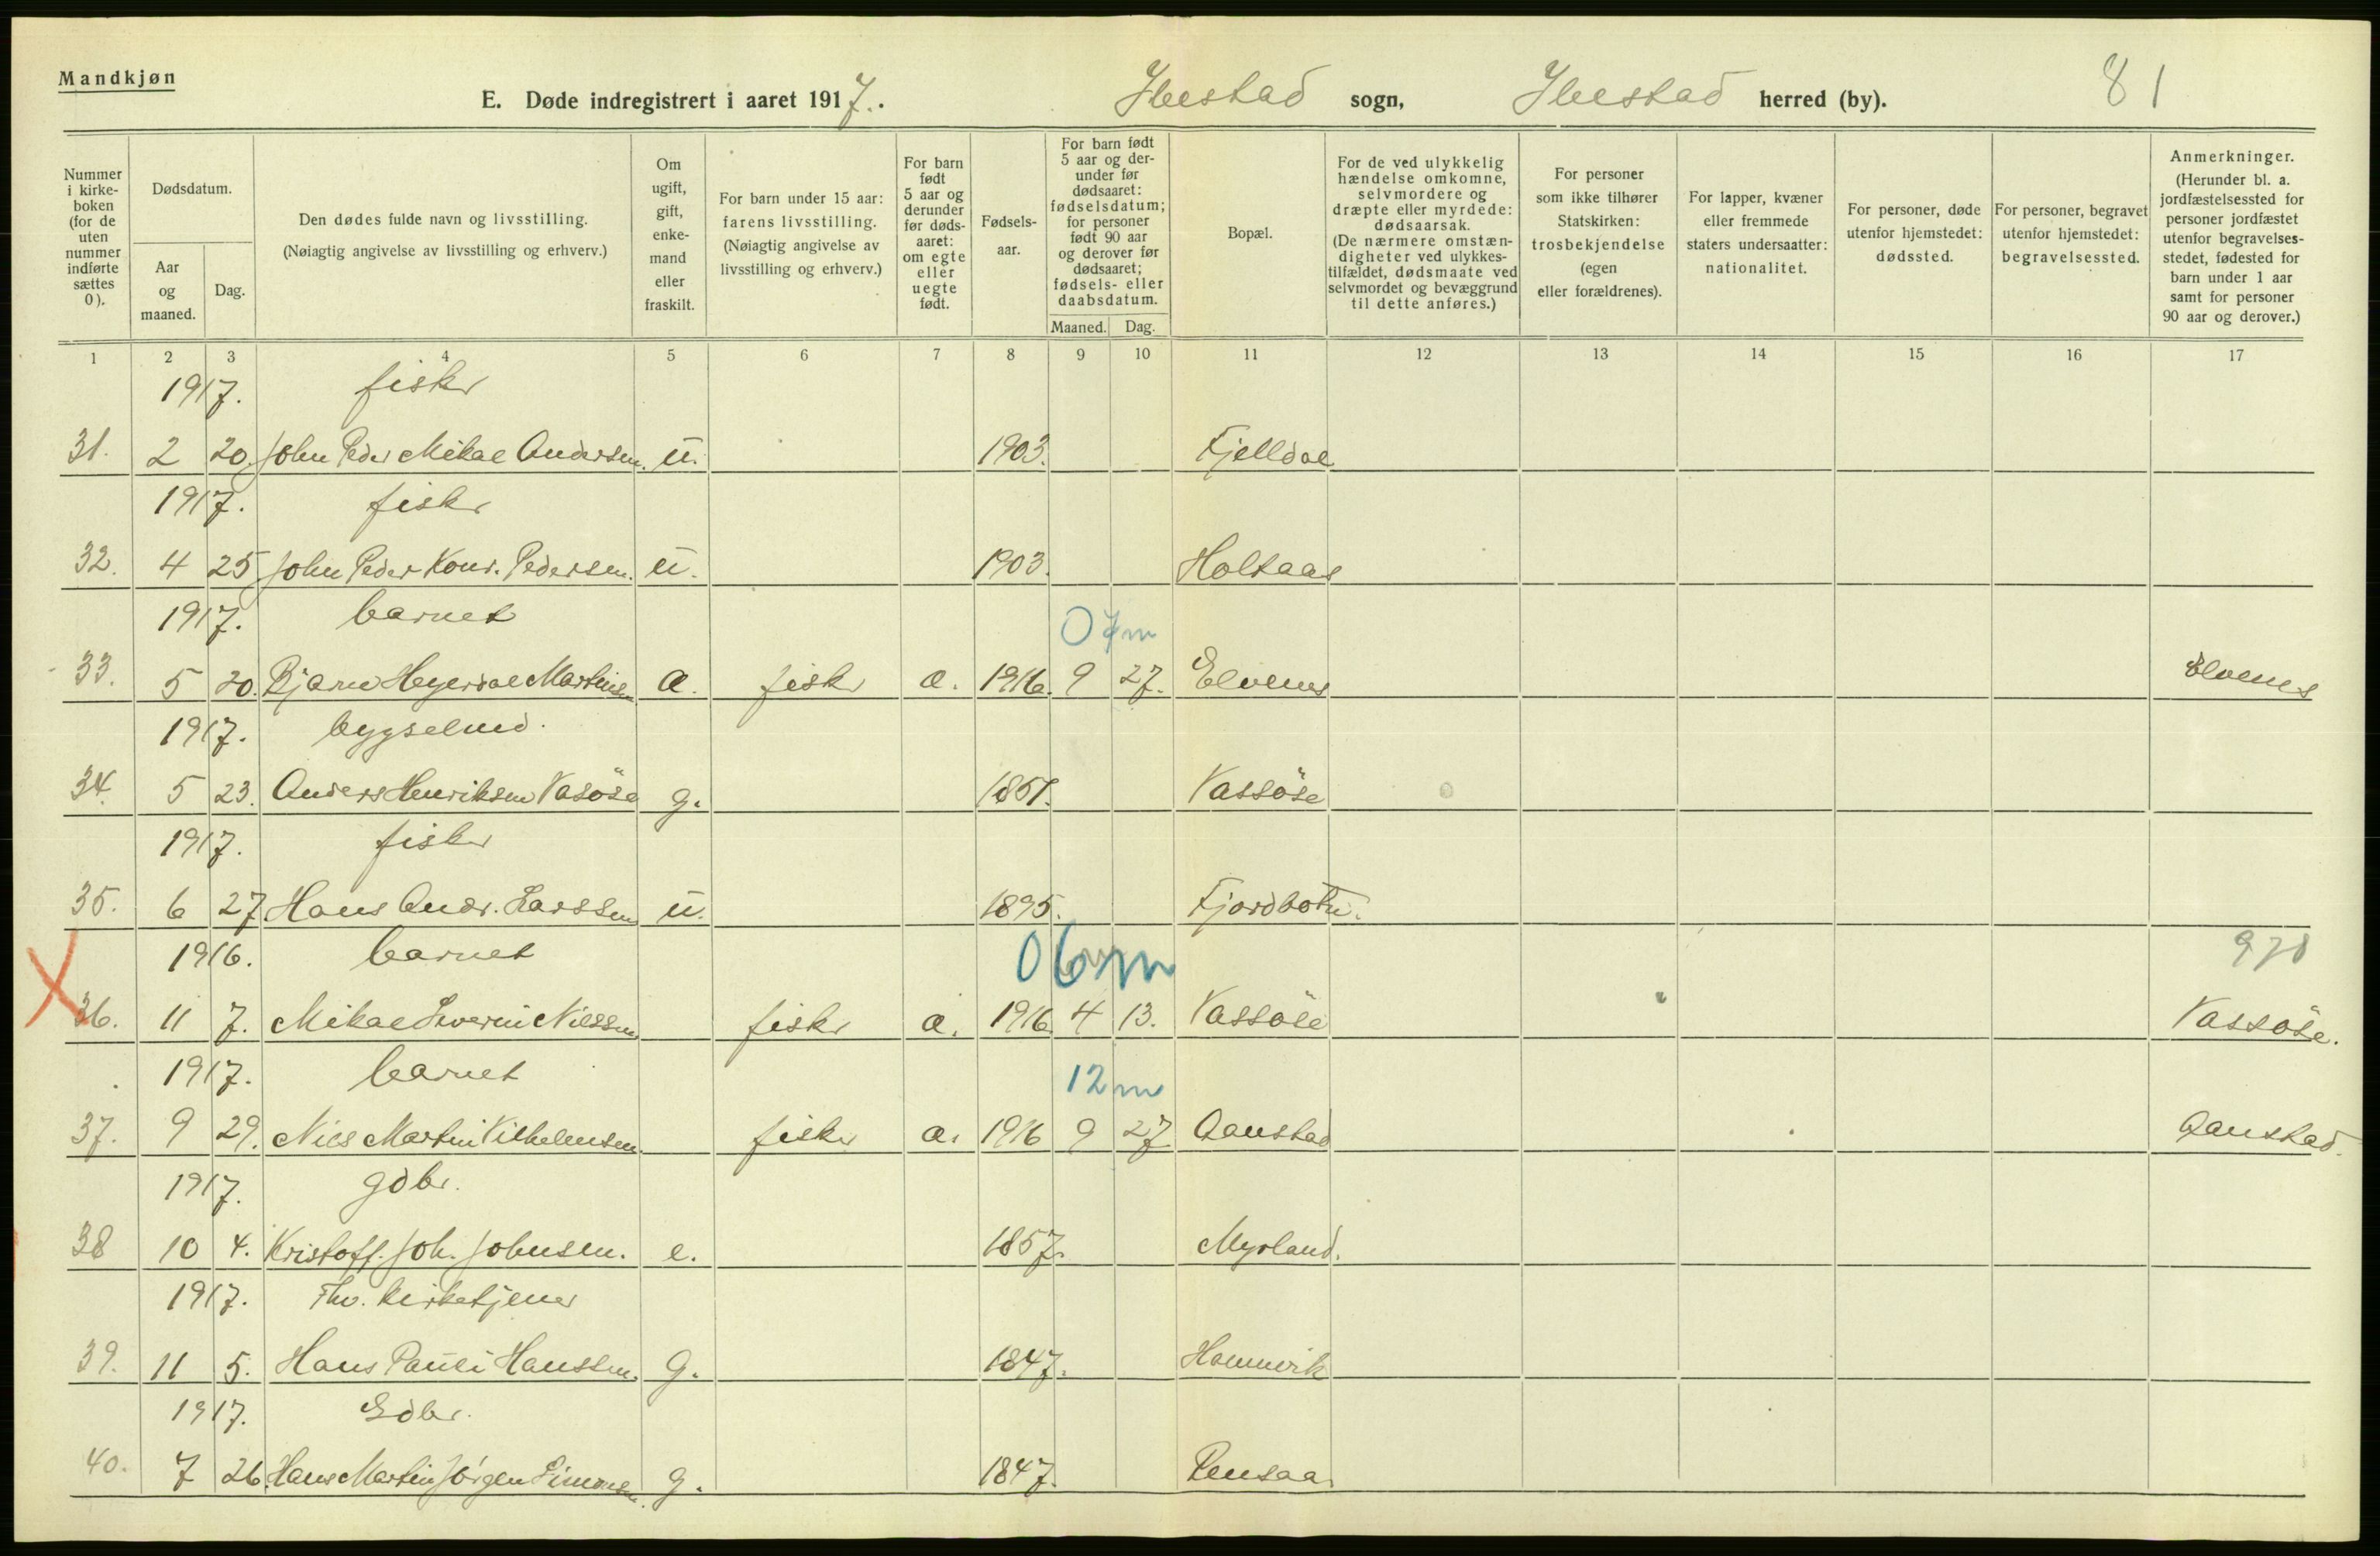 Mandkjøn
E. Døde indregistrert i aaret 1917. Ibestad sogn, Ibestad herred (by). 81
Nummer i kirkeboken (for de uten nummer indførte sættes 0).
Dødsdatum.
Aar og maaned.
Dag.
Den dødes fulde navn og livsstilling.
(Nøiagtig angivelse av livsstilling og erhverv.)
Om ugift, gift, enkemand eller fraskilt.
For barn under 15 aar: farens livsstilling. (Nøiagtig angivelse av livsstilling og erhverv.)
For barn født 5 aar og derunder før dødsaaret: om egte eller uegte født.
Fødselsaar.
For barn født 5 aar og derunder før dødsaaret: fødselsdatum; for personer født 90 aar og derover før dødsaaret; fødsels- eller daabsdatum.
Maaned. Dag.
Bopæl.
For de ved ulykkelig hændelse omkomne, selvmordere og dræpte eller myrdede: dødsaarsak. (De nærmere omstændigheter ved ulykkestilfældet, dødsmaate ved selvmordet og bevæggrund til dette anføres.)
For personer som ikke tilhører Statskirken: trosbekjendelse (egen eller forældrenes).
For lapper, kvæner eller fremmede staters undersaatter: nationalitet.
For personer, døde utenfor hjemstedet: dødssted.
For personer, begravet utenfor hjemstedet: begravelsessted.
Anmerkninger. (Herunder bl. a. jordfæstelsessted for personer jordfæstet utenfor begravelsesstedet, fødested for barn under 1 aar samt for personer 90 aar og derover.)
1 2 3 4 5 6 7 8 9 10 11 12 13 14 15 16 17
1917. fisker
31. 2 20. John Peder Mikal Andersen. u. 1903. Fjelldal
1917. fisker
32. 4 25 John Peder Konr. Pedersen. u. 1903. Holtaas
1917. barnet 0 7m
33. 5 20. Bjarne Heyerdal Martinsen a. fisker a. 1916. 9 27. Elvenes Elvenes
1917. bygselmd.
34. 5 23. Anders Henriksen Vasöse g. 1851. Vassöse
1917. fisker
35. 6 27 Hans Andr. Larssen u. 1895. Fjordbotn.
1916. barnet 06m 978
36. 11 7. Mikal Severin Nilssen fisker a. 1916. 4 13. Vassöse Vassöse.
1917. barnet 12m
37. 9 29. Nils Martin Vilhelmsen fisker a. 1916 9 27 Aanstad Aanstad.
1917. gdbr.
38 10 4. Kristoff. Joh. Johnsen. e. 1857. Myrland.
1917. Fhv. kirketjener
39. 11 5. Hans Pauli Hanssen. g. 1847. Hamnvik
1917. Gdbr.
40. 7 26. Hans Martin Jörgen Simonsen. g. 1847. Rensaa